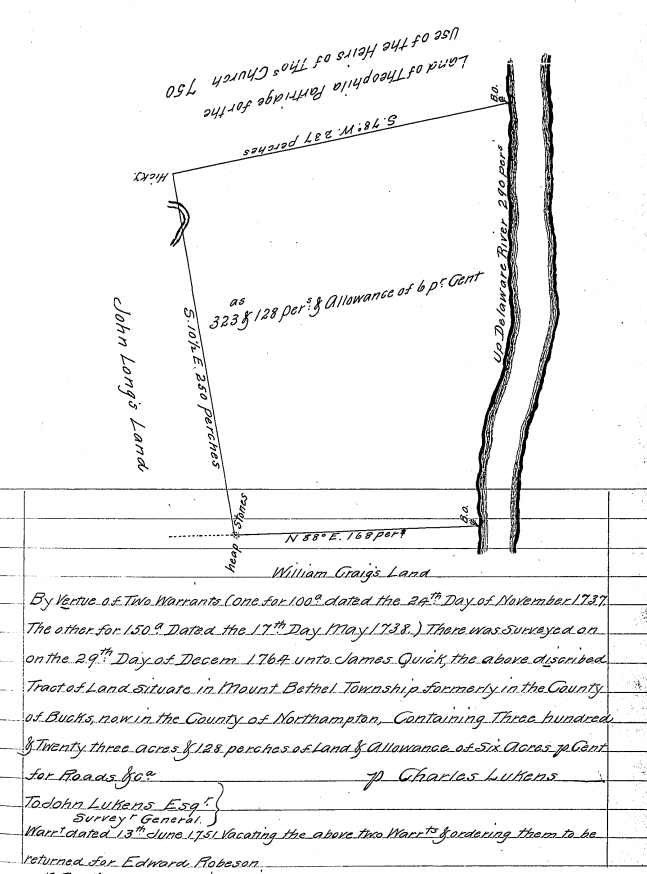 Use of the Heirs of Thos Church 750
Land of Theophila Partridge for the
B.O.
S. 78° W. 237 perches
Hicky.
Up Delaware River 290 pers
as
323 & 128 pers & Allowance of 6 pr Cent
S. 10½ E. 250 perches
John Long's Land
heap Stones
B.O.
N 88° E. 168 pers
William Craig's Land
By Vertue of Two Warrants (one for 100a dated the 24th Day of November 1737
The other for 150a Dated the 17th Day May 1738.) There was Surveyed on
on the 29th Day of Decem 1764 unto James Quick, the above discribed
Tract of Land Situate in Mount Bethel Township formerly in the County
of Bucks, now in the County of Northampton, Containing Three hundred
& Twenty three acres & 128 perches of Land & Allowance of Six Acres p Cent
for Roads &ca p Charles Lukens
To John Lukens Esqr
Surveyr General.
Warrt dated 13th June 1751 Vacating the above two Warrts & ordering them to be
returned for Edward Robeson.